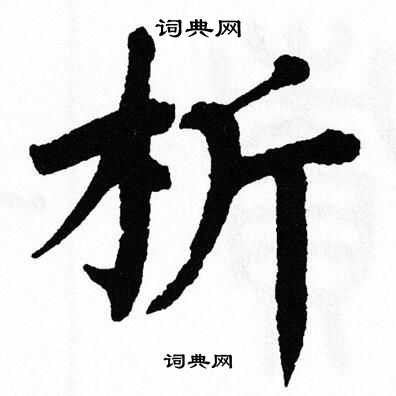 词典网
析
词典网